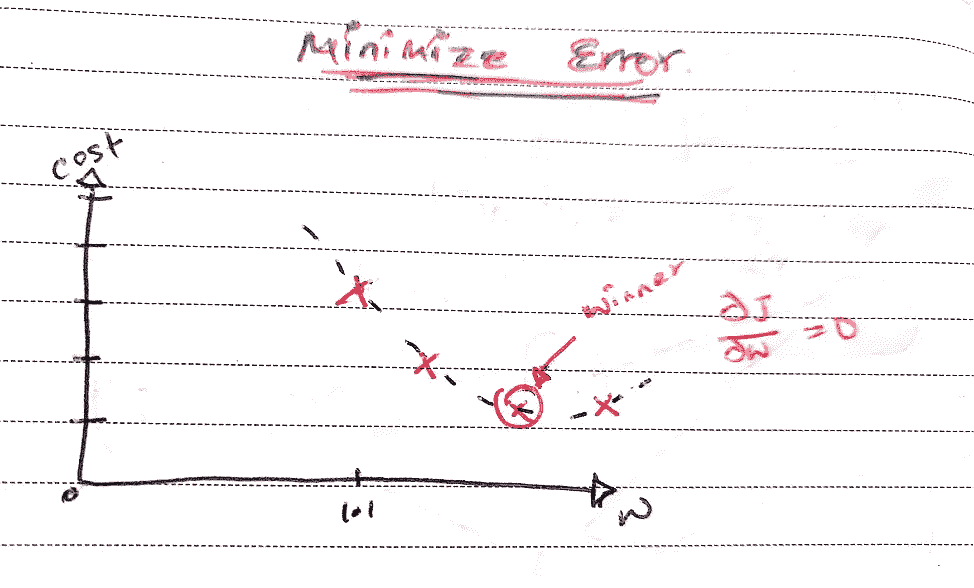 Minimize Error
cost
winner
∂J
∂W
= 0
0
1.1
W